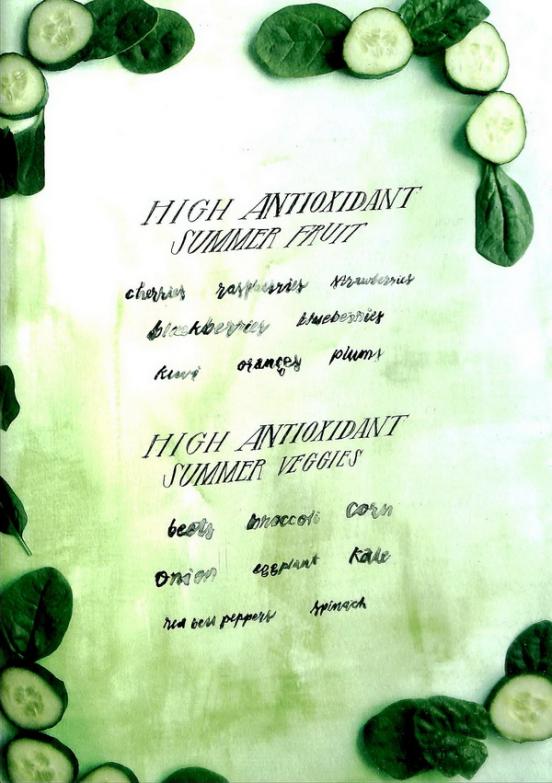 HIGH ANTIOXIDANT
SUMMER FRUIT
cherries raspberries strawberries
blackberries blueberries
kiwi oranges plums
HIGH ANTIOXIDANT
SUMMER VEGGIES
beets broccoli corn
onion eggplant kale
red bell peppers spinach